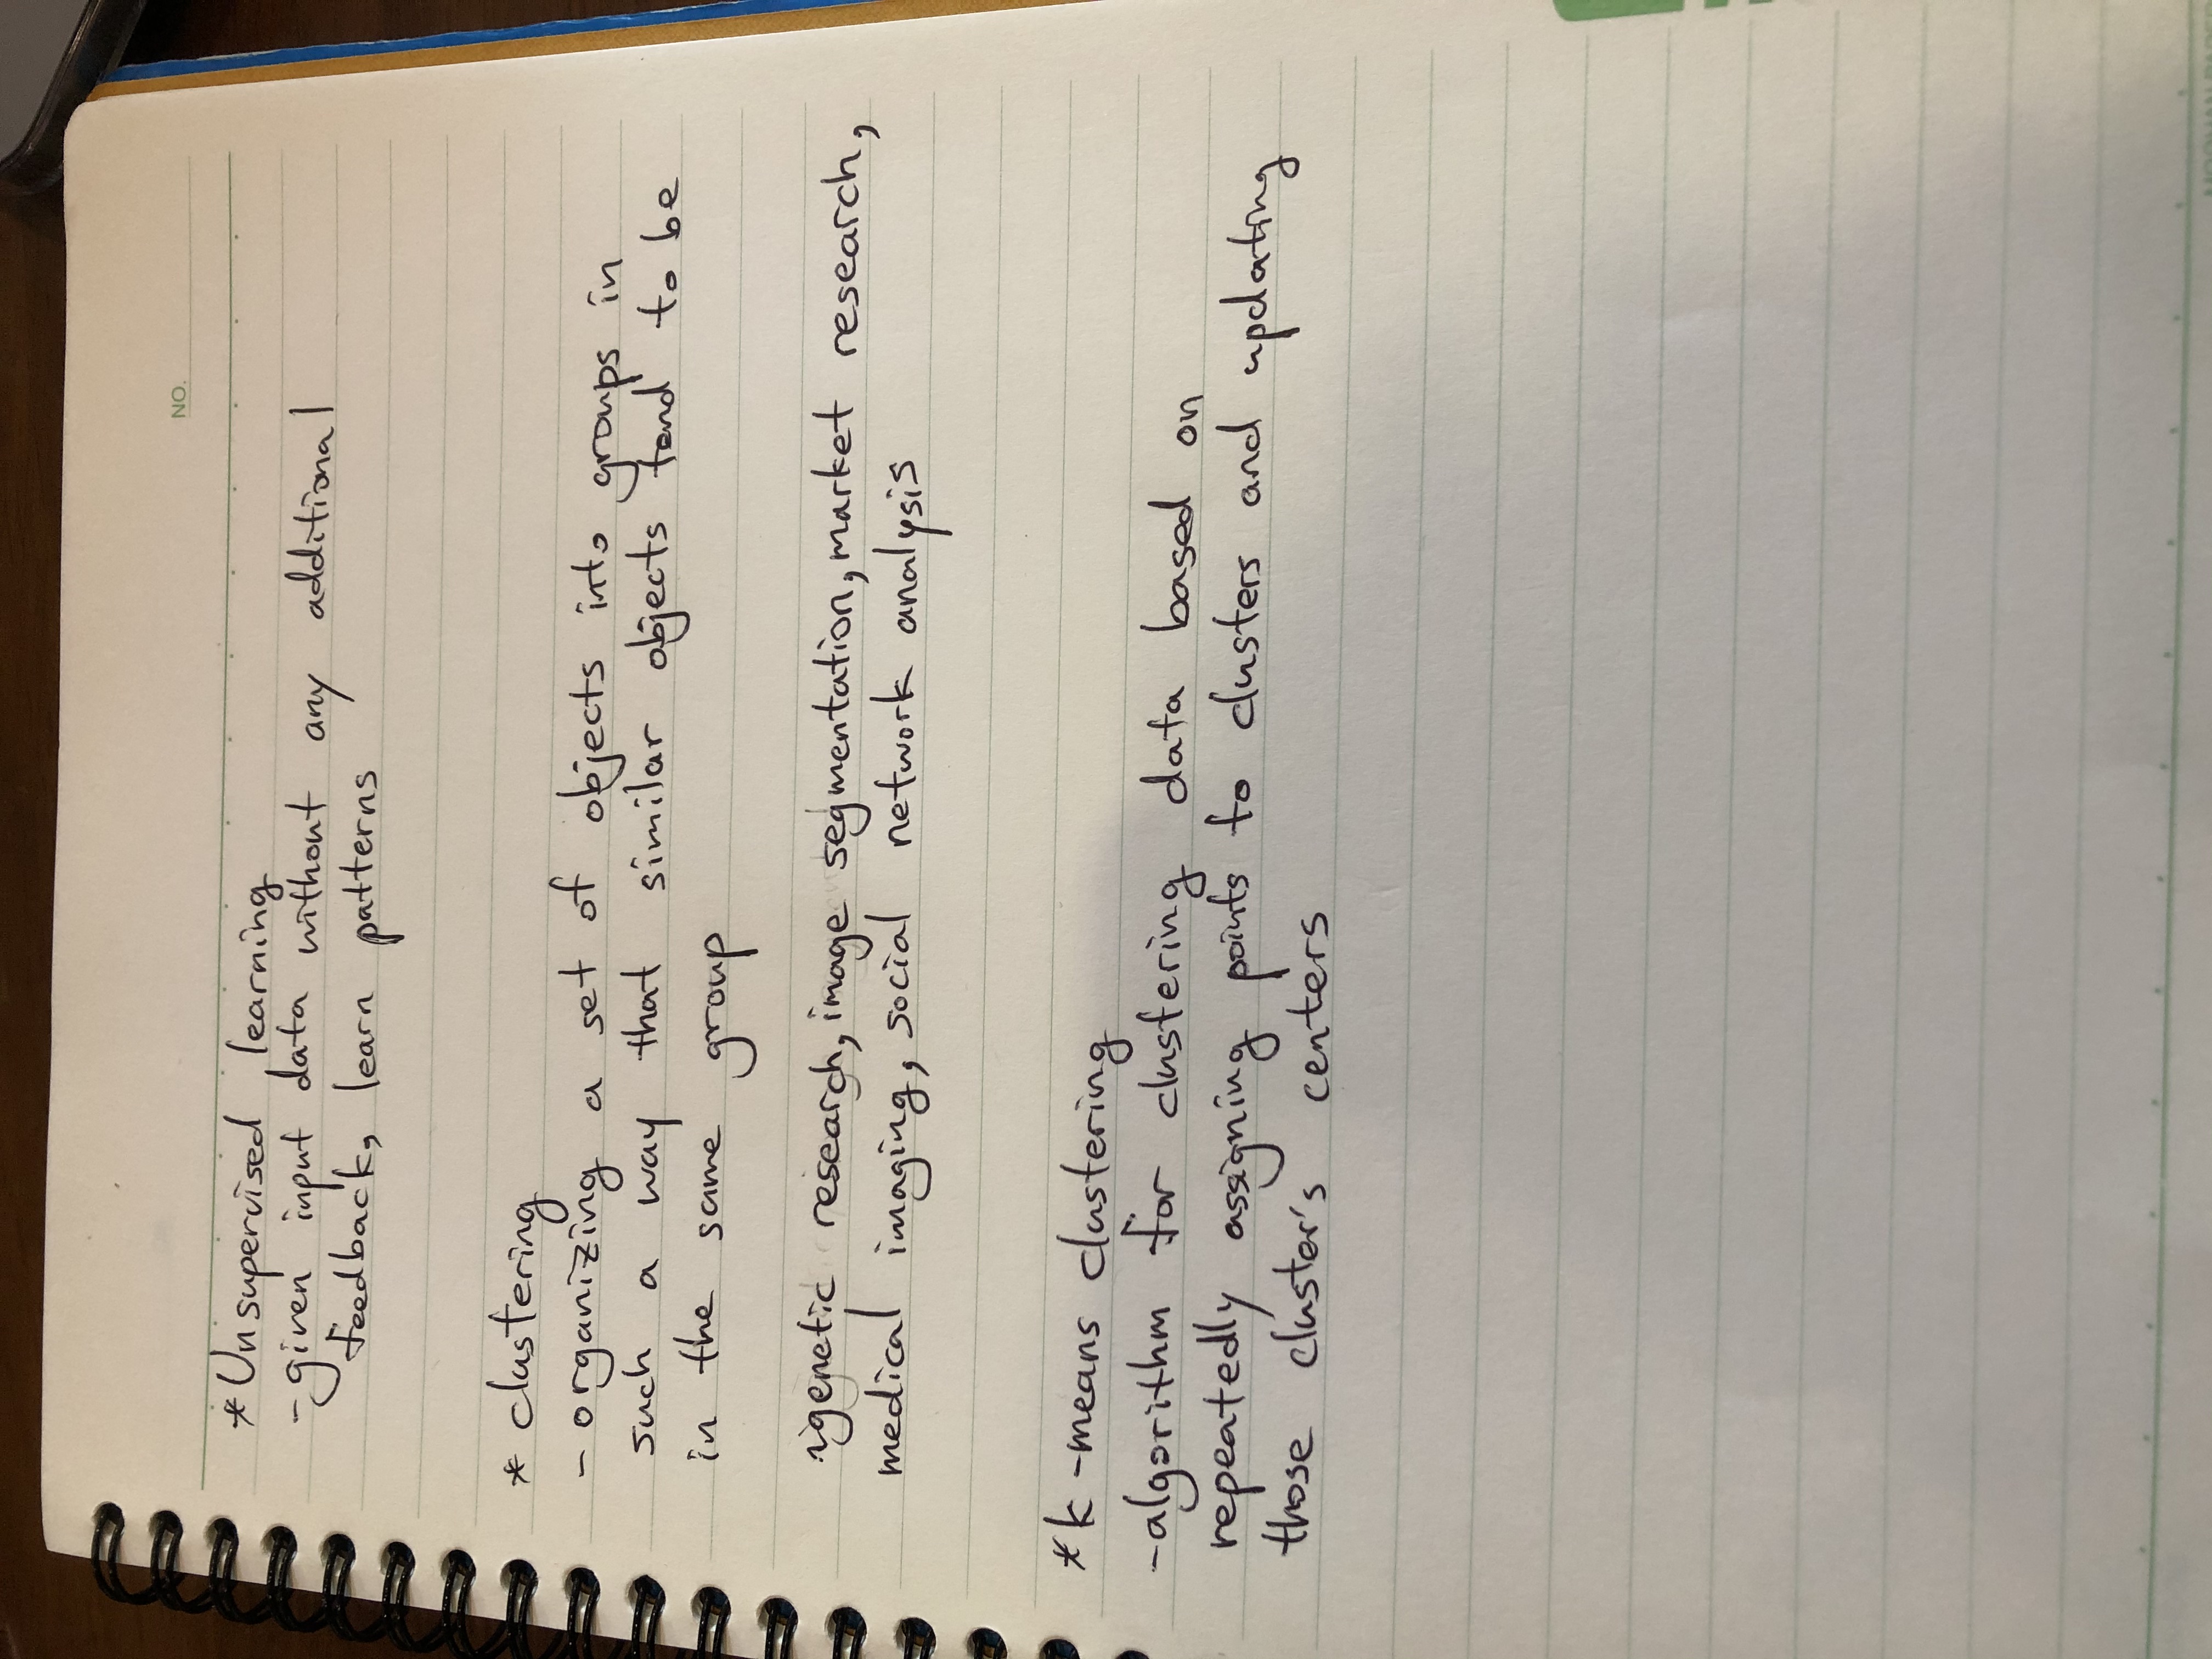 NO.
* Unsupervised learning
- given input data without any additional
feedback, learn patterns
* clustering
- organizing a set of objects into groups in
such a way that similar objects tend to be
in the same group
genetic research, image segmentation, market research,
medical imaging, social network analysis
* k -means clustering
- algorithm for clustering data based on
repeatedly assigning points to clusters and updating
those cluster's centers